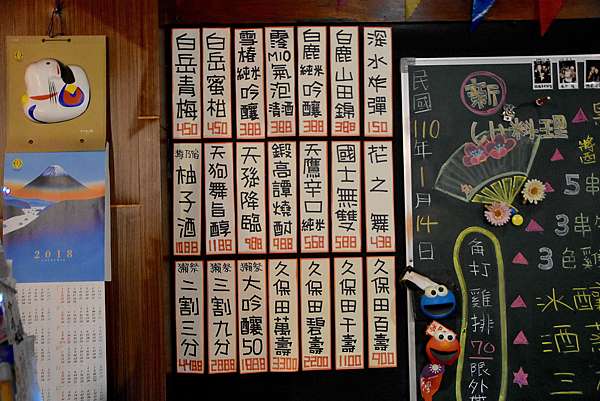 2018
白岳青梅
450
白岳蜜柑
450
雪椿純米吟釀
388
霧MIO氣泡清酒
388
白鹿純米吟釀
388
白鹿山田錦
388
深水炸彈
150
柚子酒
天狗舞旨醇
1188
天孫降臨
988
鍛高譚燒酎
488
天鷹辛口純米
568
國士無雙
588
花之舞
438
獺祭二割三分
獺祭三割九分
獺祭大吟釀50
久保田萬壽
3300
久保田碧壽
2200
久保田千壽
1100
久保田百壽
900
民國110年1月14日
新料理
5串
3串
3色雞
冰釀
酒蒸
三
角打雞排70限外帶